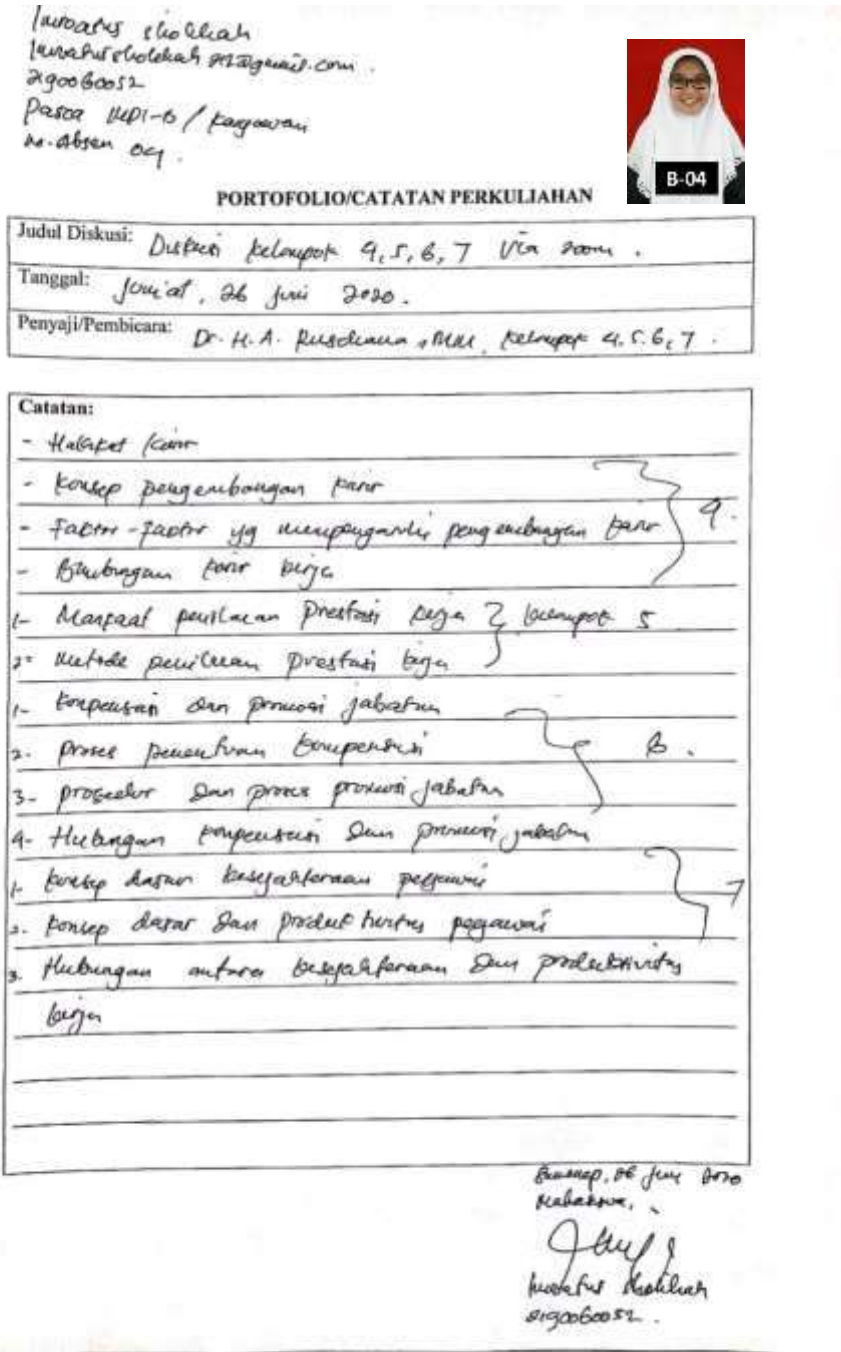 sholihah
2190060052
Pasca MPI-B / Karyawan
no. Absen 04.
B-04
PORTOFOLIO/CATATAN PERKULIAHAN
Judul Diskusi: Diskusi kelompok 4, 5, 6, 7 via zoom.
Tanggal: Jum'at, 26 Juni 2020.
Penyaji/Pembicara: Dr. H. A. Rusdiana, MM, Kelompok 4. 5. 6, 7.
Catatan:
- Hakikat karir
- Konsep pengembangan karir
- Faktor-Faktor yg mempengaruhi pengembangan karir 4.
- Bimbingan karir kerja
1- Manfaat penilaian Prestasi kerja kelompok 5
2- Metode penilaian prestasi kerja
1- Kompensasi dan promosi jabatan
2. proses penentuan kompensasi 6.
3- prosedur dan proses promosi jabatan
4- Hubungan kompensasi dan promosi jabatan
1. konsep dasar kesejahteraan pegawai 7
2. konsep dasar dan produktivitas pegawai
3. Hubungan antara kesejahteraan dan produktivitas
kerja
26 Juni 2020
Mahasiswa,
sholihah
2190060052.